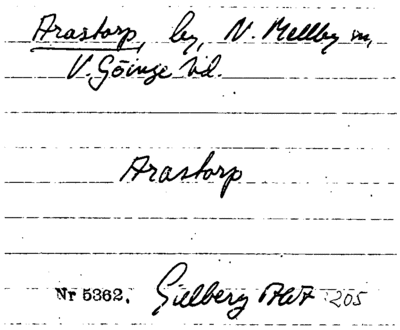 Arastorp, by, N. Mellby sn,
V. Göinge hd.
Arastorp
Nr 5362. Gillberg 205